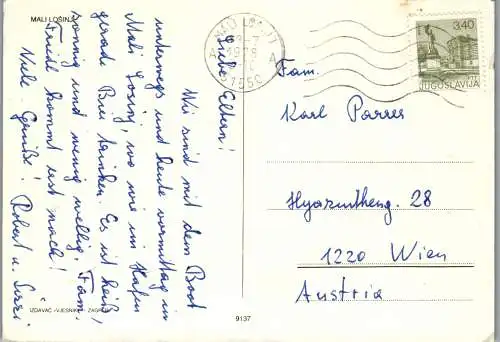 MALI LOŠINJ
Liebe Eltern!
Wir sind mit dem Boot
unterwegs und heute vormittag in
Mali Losinj, wo wir im Hafen
gerade Bier trinken. Es ist heiß,
sonnig und wenig wellig. Fam.
Friedl kommt erst nach!
Viele Grüße! Robert u. Sirri.
IZDAVAČ »VJESNIK« - ZAGREB
9137
3.40
JUGOSLAVIJA
Fam.
Karl Parres
Hyazintheng. 28
1220 Wien
Austria